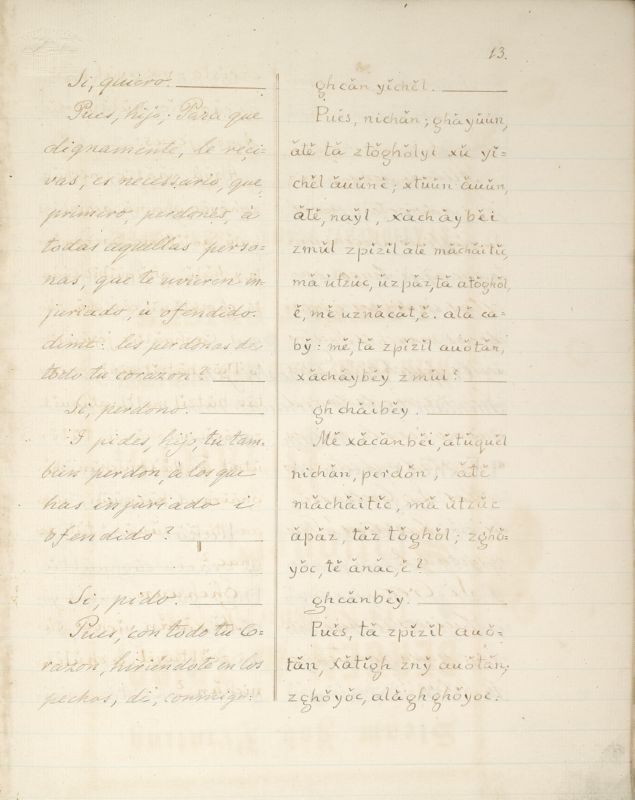 13.
Si, quiero.
Pues, hijo; Para que
dignamente, le reci-
vas, es necessario, que
primero, perdones, â
todas aquellas perso=
nas, que te uvieren in-
juriado, ù ofendido.
dime: les perdonas de
todo tu corazon?
Si, perdono.
I pides, hijo, tu tam-
bien perdon, â los que
has injuriado i
ofendido?
Si, pido.
Pues, con todo tu Co-
razon, hiriéndote en los
pechos, di, conmigo:
ghcăn yĭchĕl.
Puĕs, nichăn; ghăyŭŭn,
ătĕ tă ztŏghŏlyl xŭ yĭ=
chĕl ăuŭnĕ; xtŭŭn ăuŭn,
ătĕ, năyl, xăchăybĕi
zmŭl zpĭzĭl ătĕ măchăitĭc,
mă ŭtzŭc, ŭzpăz, tă atŏghŏl,
ĕ, mĕ uznăcăt, ĕ. ală ca=
bў: mĕ, tă zpĭzĭl auŏtăn,
xăchăybĕy zmŭl?
ghchăibĕy.
Mĕ xăcănbĕi, ătŭquĕl
nichăn, perdŏn; ătĕ
măchăitĭc, mă ŭtzŭc
ăpăz, tăz tŏghŏl; zghŏ=
yŏc, tĕ ănăc, ĕ?
ghcănbĕy.
Puĕs, tă zpĭzĭl auŏ=
tăn, xătĭgh znў auŏtăn;
zghŏyŏc, alăgh ghŏyoc.